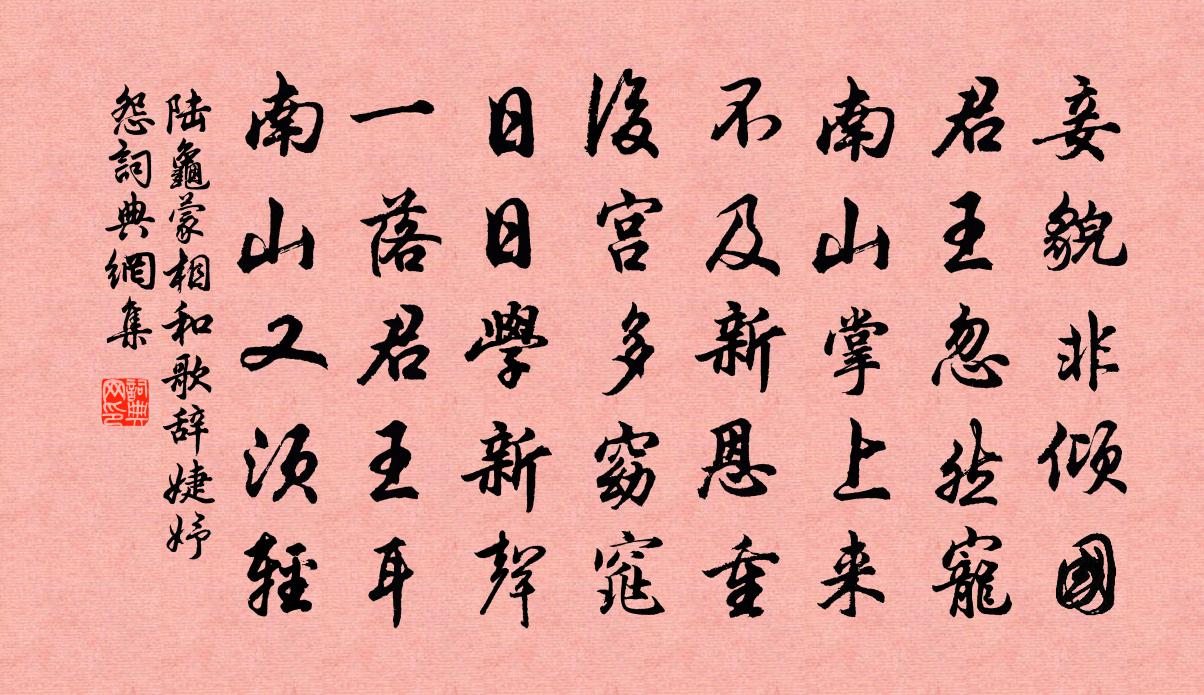 妾貌非傾國
君王忽然寵
南山掌上来
不及新恩重
後宮多窈窕
日日學新聲
一落君王耳
南山又須輕
陆龜蒙相和歌辞婕妤
怨詞典網集
詞典
网印